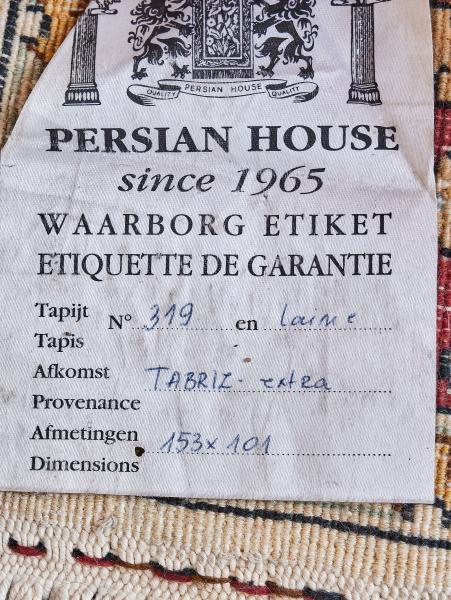 QUALITY PERSIAN HOUSE QUALITY
PERSIAN HOUSE
since 1965
WAARBORG ETIKET
ETIQUETTE DE GARANTIE
Tapijt N° 319 en laine
Tapis
Afkomst TABRIZ - extra
Provenance
Afmetingen 153 x 101
Dimensions